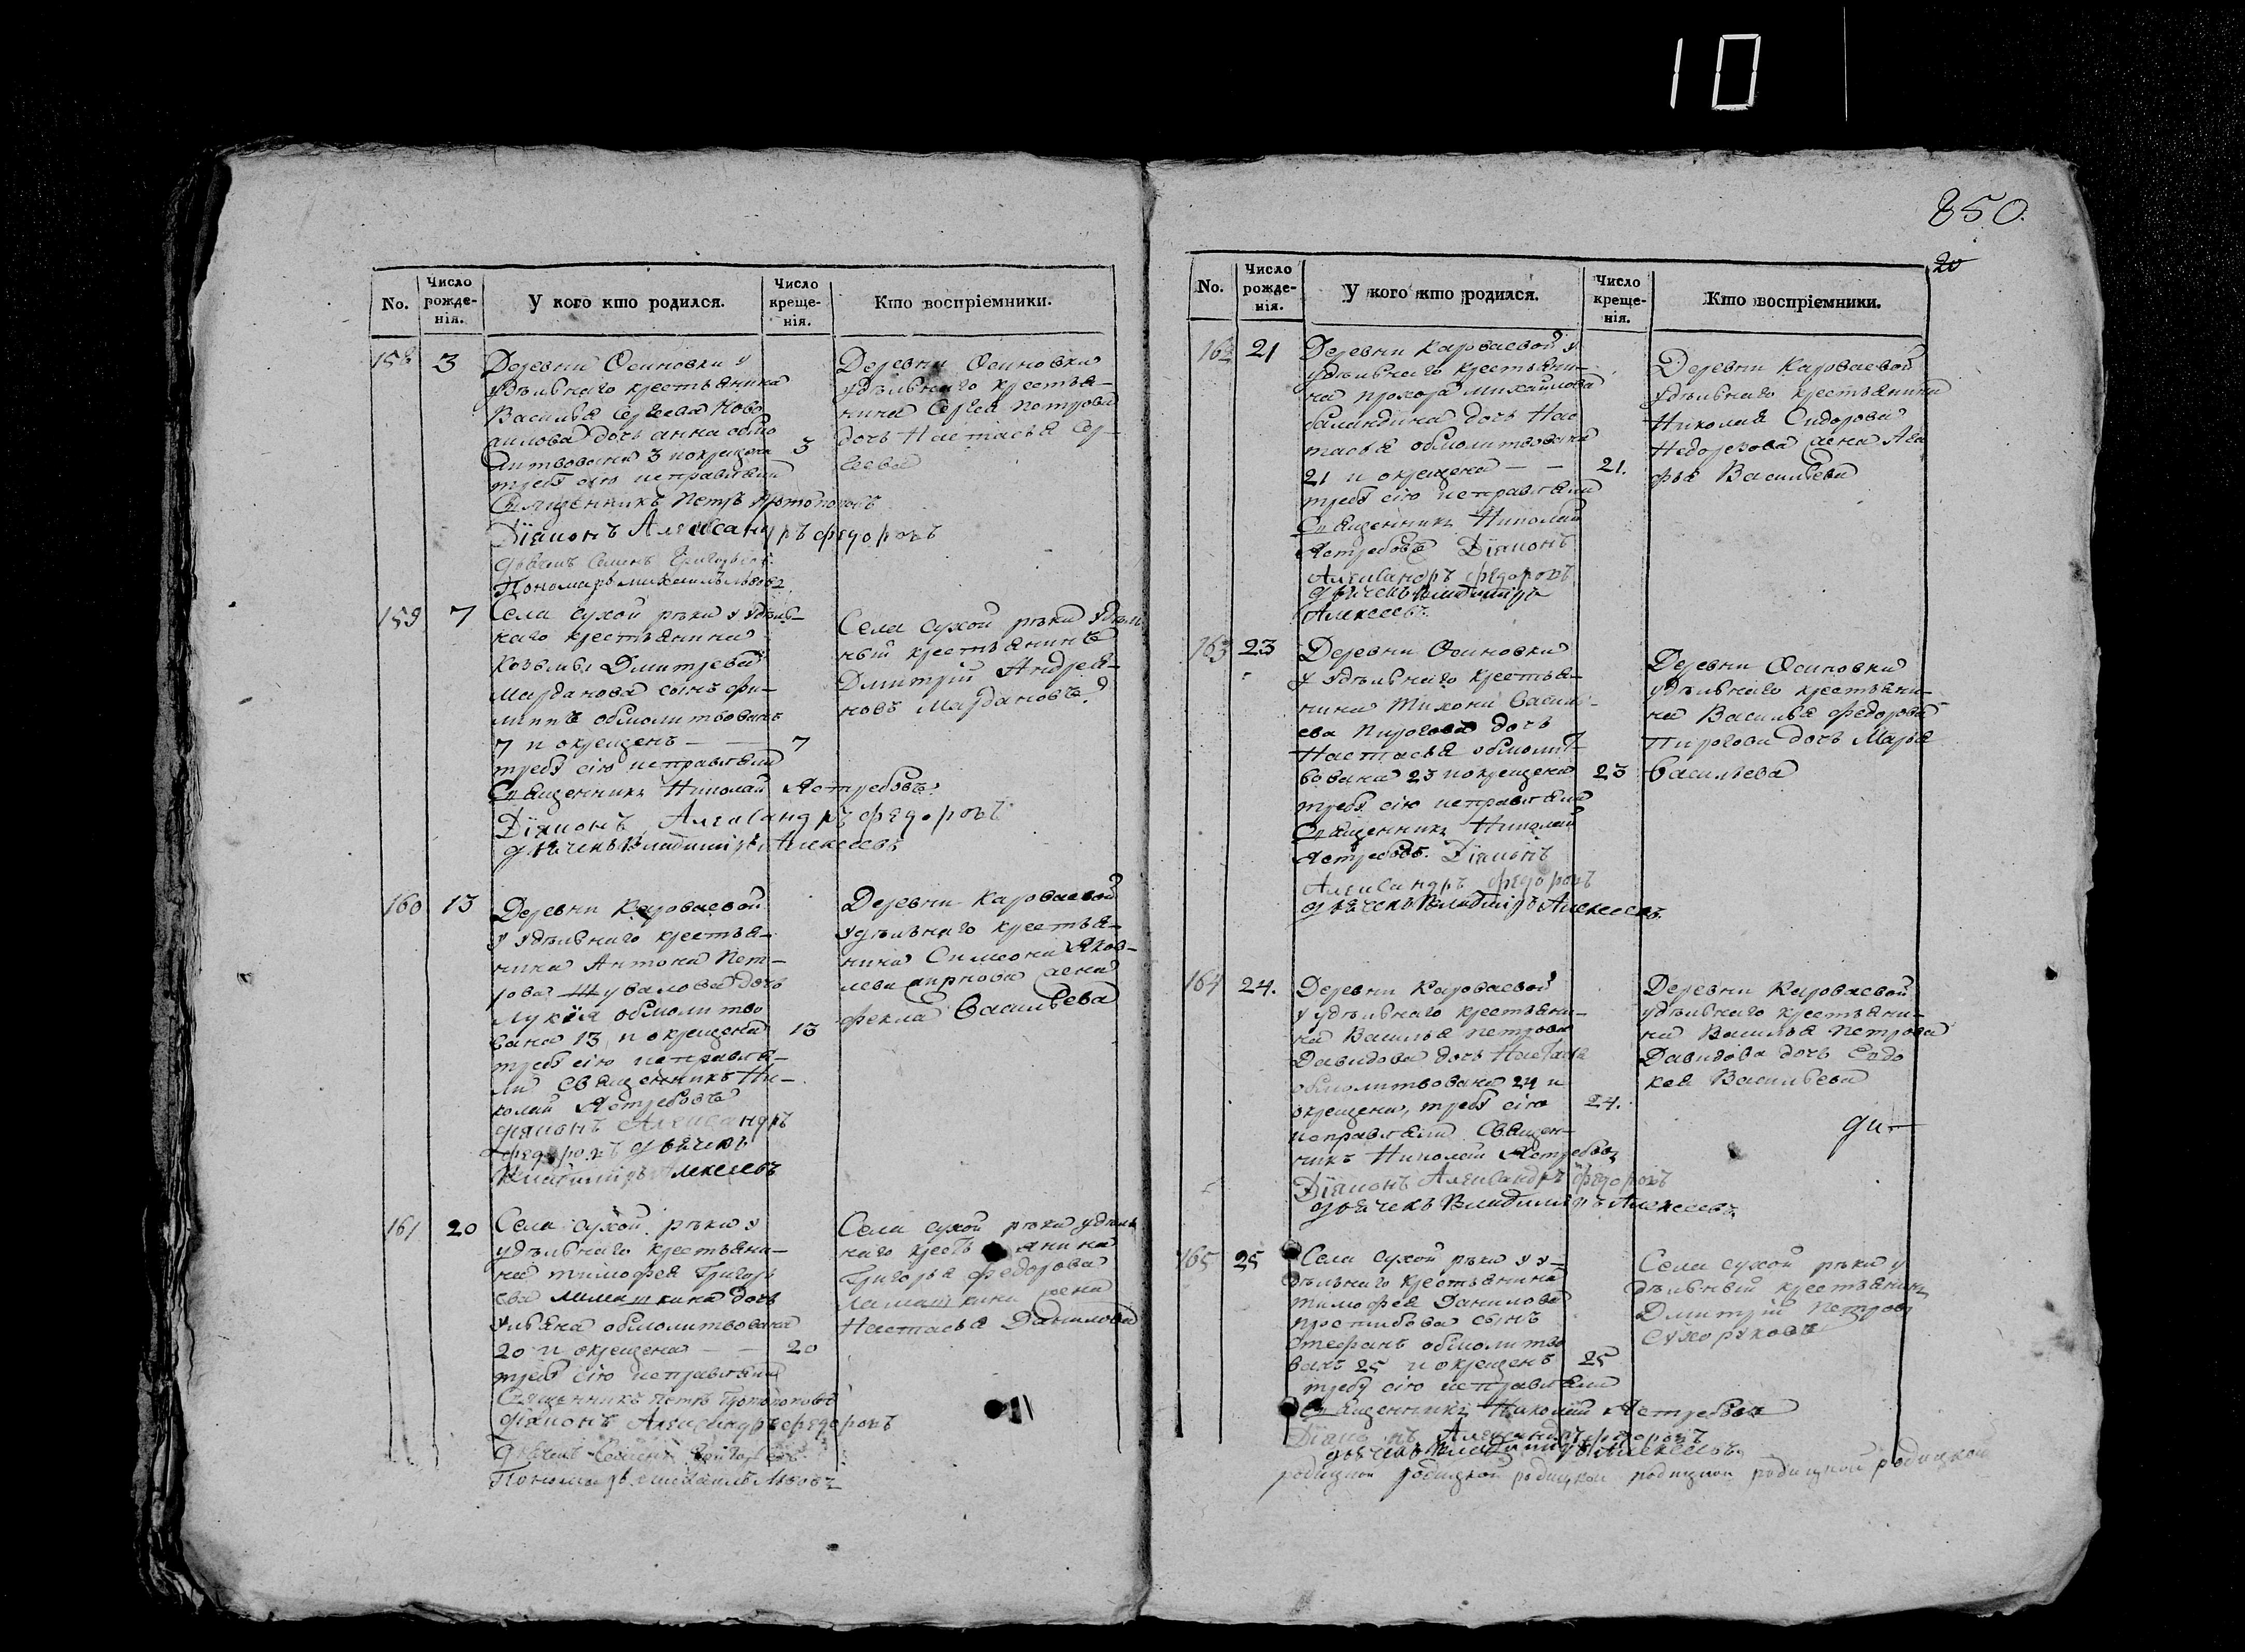 10
850.
20
No.
Число рожденія.
У кого кто родился.
Число крещенія.
Кто воспріемники.
158 3
Деревни Осиновки у
удѣльнаго крестьянина
Василья Сергеева
дочь анна обмо
литвована 3 и окрещена 3
требу сію исправляли
Священникъ Петръ Протопоповъ
Діяконъ Александръ Федоровъ
дьячекъ Семенъ Григорьевъ
Пономарь михаилъ львовъ
Деревни Осиновки
удѣльнаго крестья-
нина Сергея Петрова
дочь Настасья Сер-
геева
159 7
Села сухой рѣки у удѣль-
наго крестьянина
Козьмы Дмитрева
Марданова сынъ фи-
липпъ обмолитвованъ
7 и окрещенъ — 7
требу сію исправляли
Священникъ Николай Ястребовъ
Діяконъ Александръ Федоровъ
дьячекъ Владимиръ Алексеевъ
Села сухой рѣки удѣль
ный крестьянинъ
Дмитрій Андрея-
новъ Мардановъ
160 13
Деревни Караваевой
у удѣльнаго крестья-
нина Антона Пет-
рова Шувалова дочь
Лукія обмолитво
вана 13 и окрещена 13
требу сію исправля-
ли Священникъ Ни-
колай Ястребовъ
діяконъ Александръ
Федоровъ дьячекъ
Владимиръ Алексеевъ
Деревни Караваевой
удѣльнаго крестья-
нина Симеона Яков-
лева жена
фекла Васильева
161 20
Села сухой рѣки у
удѣльнаго крестьяни-
на тимофея Григорь
ева Ламаткина дочь
Ульяна обмолитвована
20 и окрещена — — 20
требу сію исправляли
Священникъ петръ Протопоповъ
діяконъ Александръ Федоровъ
дьячекъ Семенъ Григорьевъ
Пономарь михаилъ Львовъ
Села сухой рѣки удѣль
наго кресть янина
Григорья Федорова
Ламаткина жена
Настасья Данилова
No.
Число рожденія.
У кого кто родился.
Число крещенія.
Кто воспріемники.
162 21
Деревни Караваевой у
удѣльнаго крестьяни-
на прохора михаилова
баландина дочь Нас
тасья обмолитвована
21 и окрещена — — 21.
требу сію исправляли
Священникъ Николай
Ястребовъ Діяконъ
Александръ Федоровъ
дьячекъ Владимиръ
Алексеевъ
Деревни Караваевой
удѣльнаго крестьянина
Николая Сидорова
Недорезова жена Ага
фья Васильева
163 23
Деревни Осиновки
у удѣльнаго крестья-
нина Тихона Василь-
ева Пирогова дочь
Настасья обмолит-
вована 23 и окрещена 23
требу сію исправляли
Священникъ Николай
Ястребовъ. Діяконъ
Александръ Федоровъ
дьячекъ Владимиръ Алексеевъ
Деревни Осиновки
удѣльнаго крестьяни-
на Василья Федорова
Пирогова дочь Марья
Васильева
164 24.
Деревни Караваевой
у удѣльнаго крестьяни-
на Василья Петрова
Давидова дочь Настасья
обмолитвована 24 и
окрещена, требу сію 24.
исправляли Священ-
никъ Николай Ястребовъ
Діяконъ Александръ Федоровъ
дьячекъ Владимиръ Алексеевъ
Деревни Караваевой
удѣльнаго крестьяни-
на Василья Петрова
Давидова дочь Евдо
кея Васильева
ди—
165 25
Села сухой рѣки у у-
дѣльнаго крестьянина
тимофея Данилова
сынъ
Стефанъ обмолитво
ванъ 25 и окрещенъ 25
требу сію исправляли
Священникъ Николай Ястребовъ
Діяконъ Александръ Федоровъ
дьячекъ Владимиръ Алексеевъ
Села сухой рѣки у
дѣльный крестьянинъ
Дмитрій Петровъ
Сухоруковъ